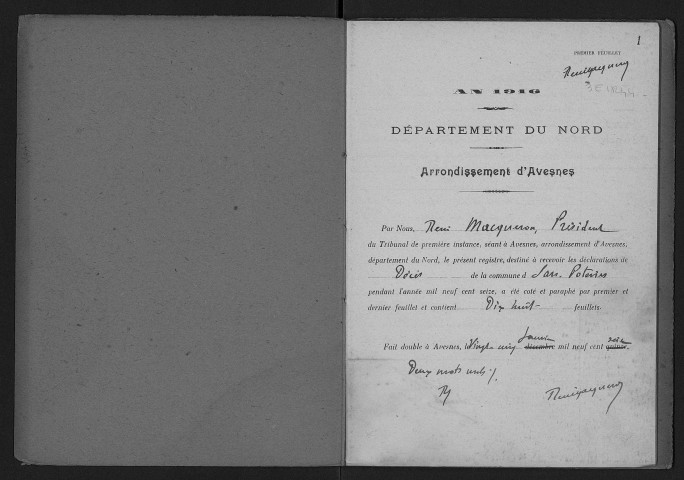 1
PREMIER FEUILLET
AN 1916
DÉPARTEMENT DU NORD
Arrondissement d'Avesnes
Par Nous, René Macqueron, Président
du Tribunal de première instance, séant à Avesnes, arrondissement d'Avesnes,
département du Nord, le présent registre, destiné à recevoir les déclarations de
Décès de la commune d Sars-Poteries
pendant l'année mil neuf cent seize, a été coté et paraphé par premier et
dernier feuillet et contient Dix huit feuillets.
Janvier seize
Fait double à Avesnes, le Vingt cinq décembre mil neuf cent quinze.
Deux mots nuls ./.